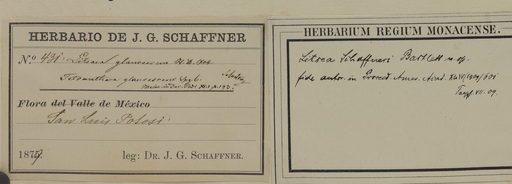 HERBARIO DE J. G. SCHAFFNER
No. 431. Litsea glaucescens H. B. Kth
Tetranthera glaucescens Sprl.
Flora del Valle de México
San Luis Potosi
1879. leg: DR. J. G. SCHAFFNER.
HERBARIUM REGIUM MONACENSE.
Litsea Schaffneri Bartlett n. sp.
fide autor. in Proceed. Amer. Acad.